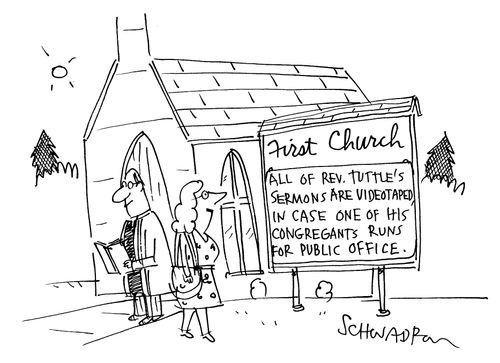 First Church
ALL OF REV. TUTTLE'S
SERMONS ARE VIDEOTAPED
IN CASE ONE OF HIS
CONGREGANTS RUNS
FOR PUBLIC OFFICE.
SCHWADRON